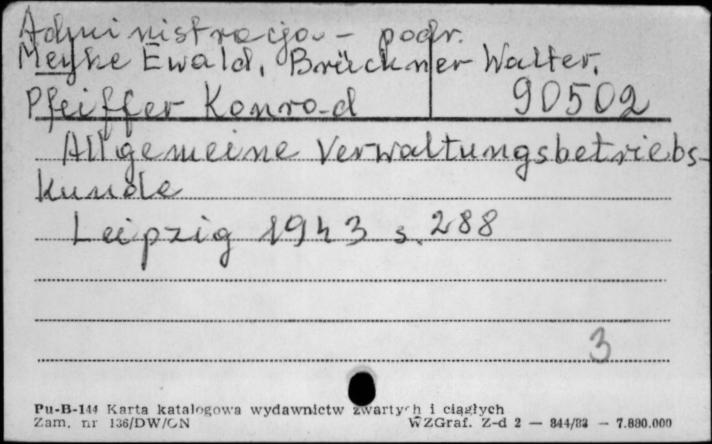 Administracja - podr.
Meyke Ewald, Brückner Walter,
Pfeiffer Konrad 90502
Allgemeine Verwaltungsbetriebs-
kunde
Leipzig 1943 s. 288
3
Pu-B-144 Karta katalogowa wydawnictw zwartych i ciągłych
Zam. nr 136/DW/GN WZGraf. Z-d 2 — 844/83 — 7.880.000